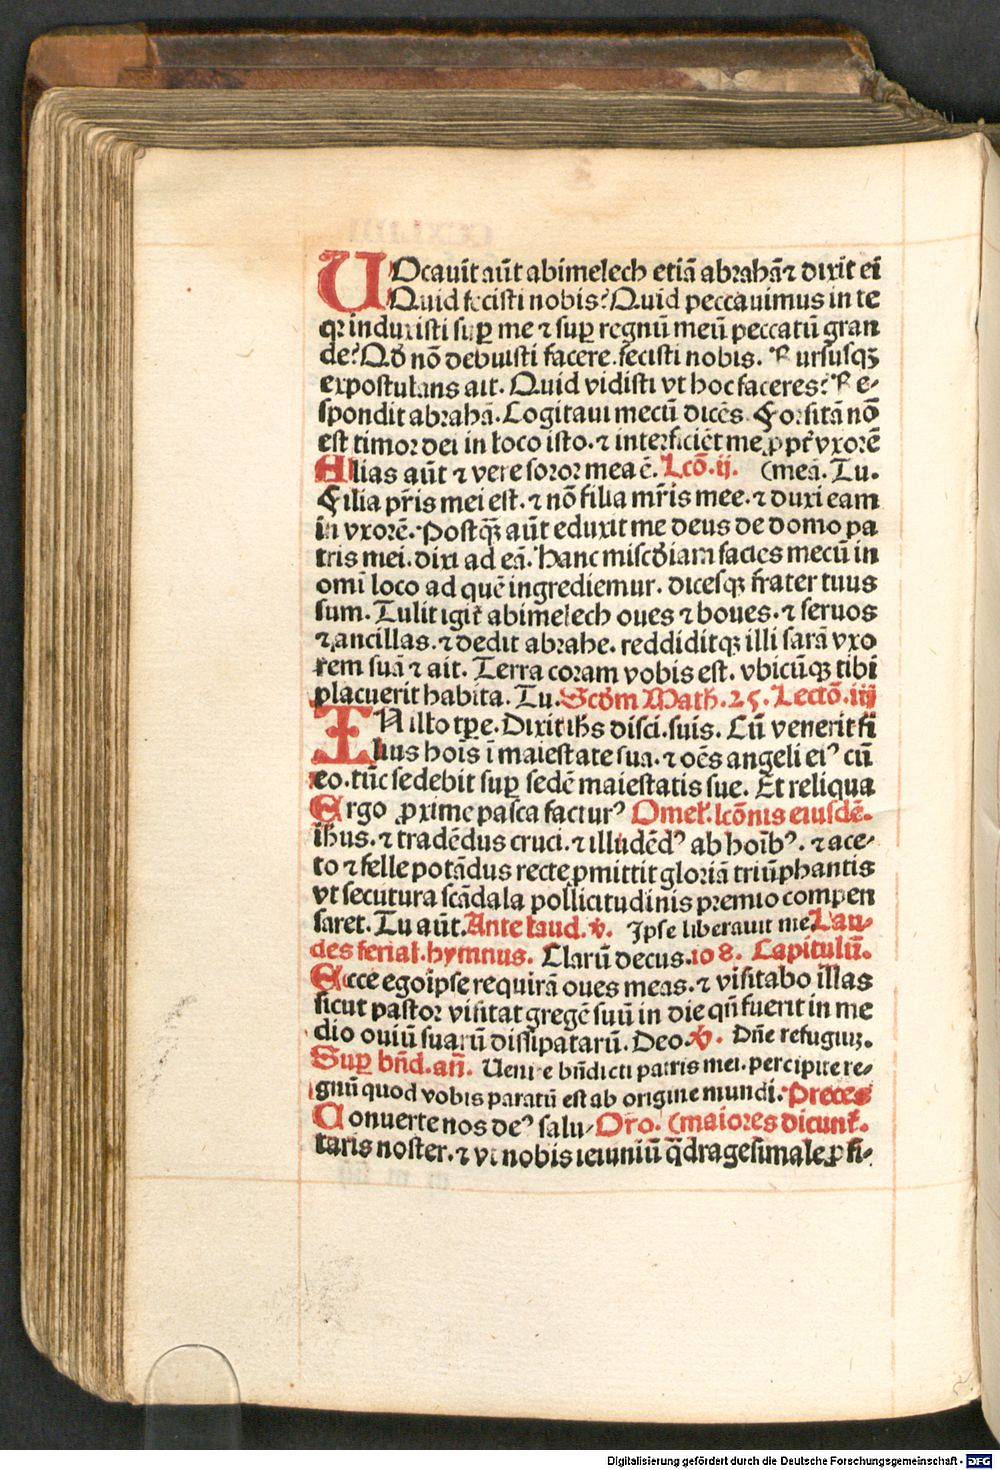 UOcauit aūt abimelech etiā abrahā ⁊ dixit ei
Quid fecisti nobis? Quid peccauimus in te
qꝛ induxisti suꝑ me ⁊ suꝑ regnū meū peccatū gran
de? Qđ nō debuisti facere. fecisti nobis. Rursusqꝫ
expostulans ait. Quid vidisti vt hoc faceres? Re⸗
spondit abrahā. Cogitaui mecū dicēs. Forsitā nō
est timor dei in loco isto. ⁊ interficiēt me ꝓpt̄ vxorē
Alias aūt ⁊ vere soror mea ē. Lcō. ij. (meā. Tu.
Filia pr̄is mei est. ⁊ nō filia mr̄is mee. ⁊ duxi eam
in vxorē. Postqꝫ̄ aūt eduxit me deus de domo pa
tris mei. dixi ad eā. Hanc misc̄diam facies mecū in
omī loco ad quē ingrediemur. dicesqꝫ frater tuus
sum. Tulit igit̄ abimelech oues ⁊ boues. ⁊ seruos
⁊ ancillas. ⁊ dedit abrahe. reddiditqꝫ illi sarā vxo
rem suā ⁊ ait. Terra coram vobis est. vbicūqꝫ tibi
placuerit habita. Tu. Scđm Math. 25. Lectō. iij
IN illo tꝑe. Dixit ihs disci. suis. Cū venerit fi
lius hoīs ī maiestate sua. ⁊ oēs angeli eiꝰ cū
eo. tūc sedebit suꝑ sedē maiestatis sue. Et reliqua
Ergo ꝓxime pasca facturꝰ Omeł. lcōnis eiusdē.
ihus. ⁊ tradēdus cruci. ⁊ illudēdꝰ ab hoībꝰ. ⁊ ace⸗
to ⁊ felle potādus recte ꝑmittit gloriā triūphantis
vt secutura scādala pollicitudinis premio compen
saret. Tu aūt. Ante laud. ꝟ. Ipse liberauit me Lau⸗
des feriał. hymnus. Clarū decus. 108. Capitulū.
Ecce ego ipse requirā oues meas. ⁊ visitabo illas
sicut pastor visitat gregē suū in die qn̄ fuerit in me
dio ouiū suarū dissipatarū. Deo. ꝟ. Dn̄e refugiū.
Suꝑ bn̄d. an̄. Uenite bn̄dicti patris mei. percipite re⸗
gnū quod vobis paratū est ab origine mundi. Preces
Conuerte nos deꝰ salu⸗ Oro. (maiores dicunt̄.
taris noster. ⁊ vt nobis ieiuniū q̄dragesimale ꝓfi⸗
Digitalisierung gefördert durch die Deutsche Forschungsgemeinschaft - DFG